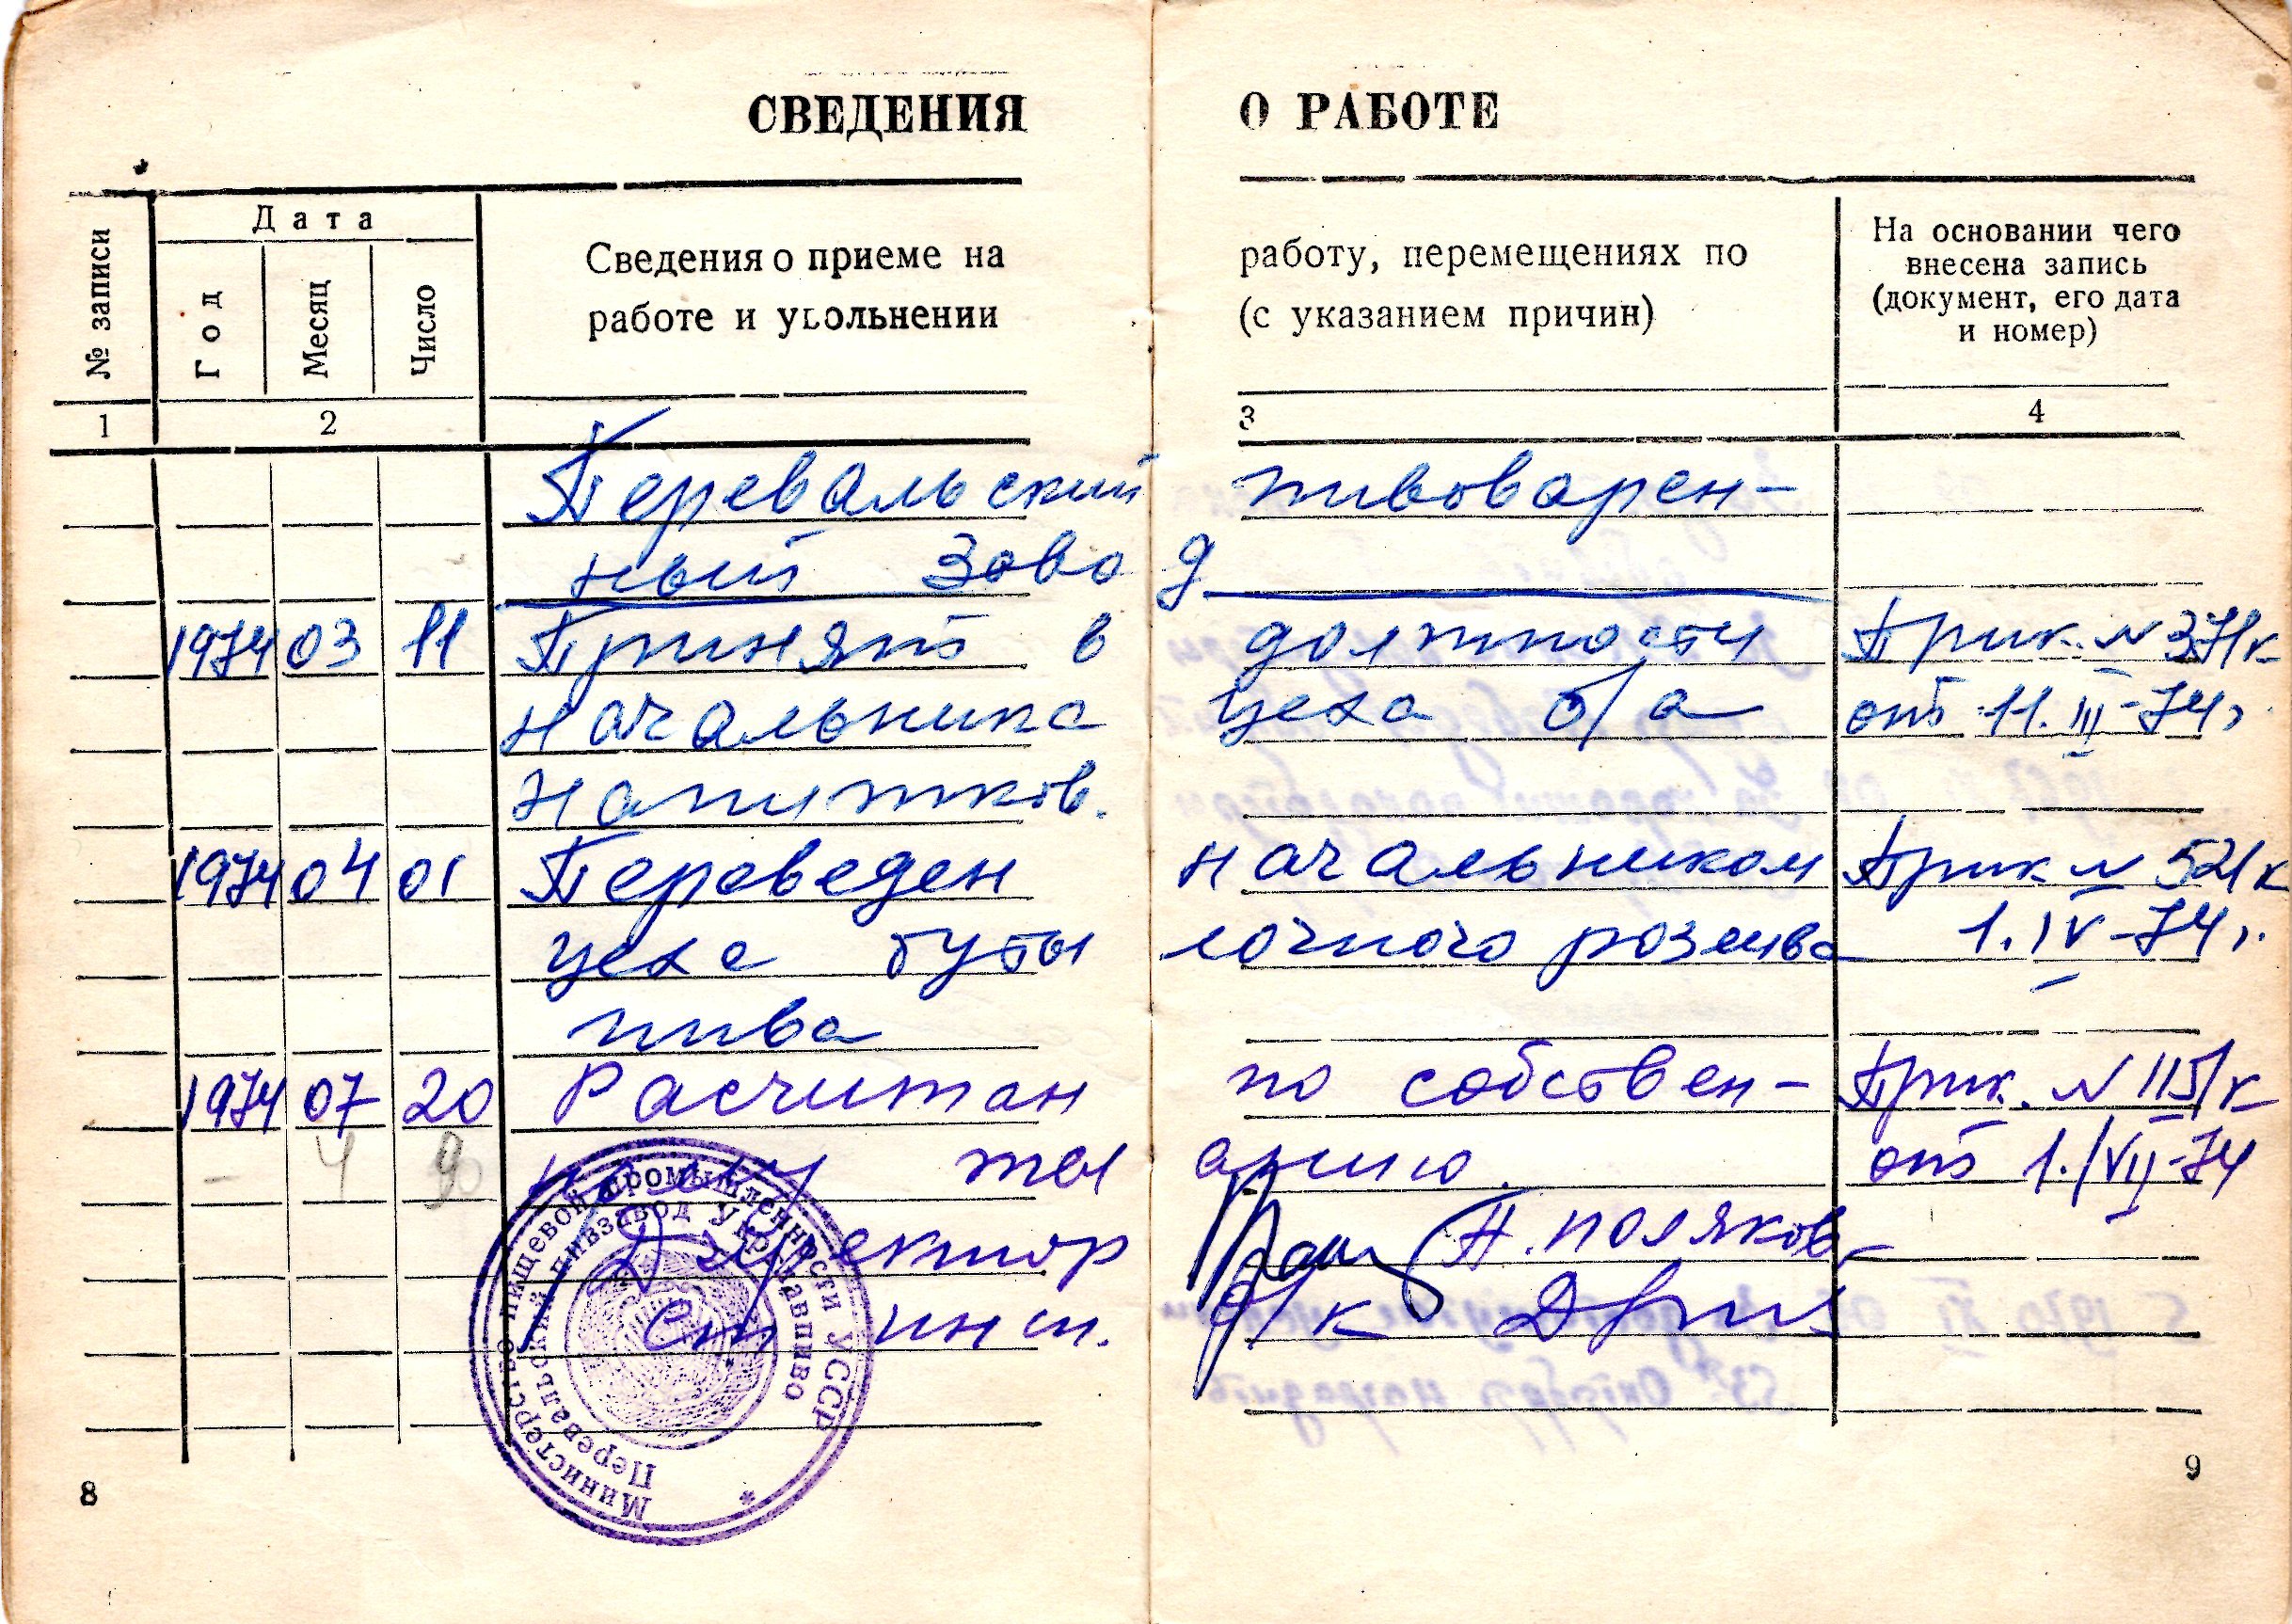 СВЕДЕНИЯ О РАБОТЕ
№ записи
Дата
Год
Месяц
Число
Сведения о приеме на работу, перемещениях по
работе и увольнении (с указанием причин)
На основании чего
внесена запись
(документ, его дата
и номер)
1 2 3 4
Перевальский пивоварен-
ный завод
1974 03 11 Принят в должности Прик. N 371к
начальника цеха б/а от 11.III-74г.
напитков.
1974 04 01 Переведен начальником Прик N 521к
цеха бутылочного розлива 1.IV-74г.
пива
1974 07 20 Расчитан по собствен- Прик. N 115/к
ному желанию. от 1./VII-74
Директор Н. Поляков
ст инсп. о/к
Министерство пищевой промышленности УССР
Перевальский пивзавод Укрглавпиво
8 9